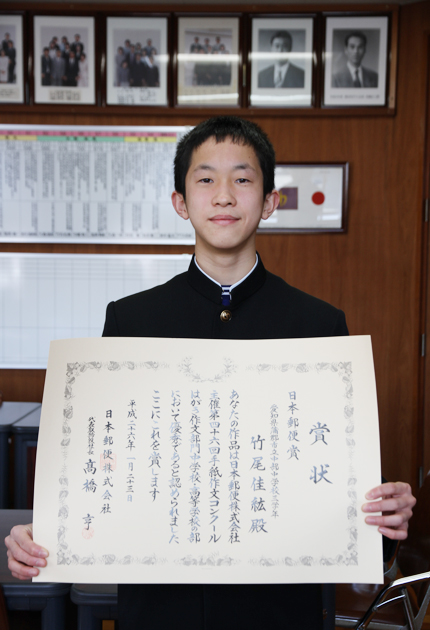 賞状
日本郵便賞
愛知県蒲郡市立中部中学校
竹尾佳紘殿
あなたの作品は日本郵便株式会社
主催第四十六回手紙作文コンクール
はがき作文部門中学校・高等学校の部
において優秀であると認められました
ここにこれを賞します
平成二十六年一月二十三日
日本郵便株式会社
代表取締役社長
髙橋亨